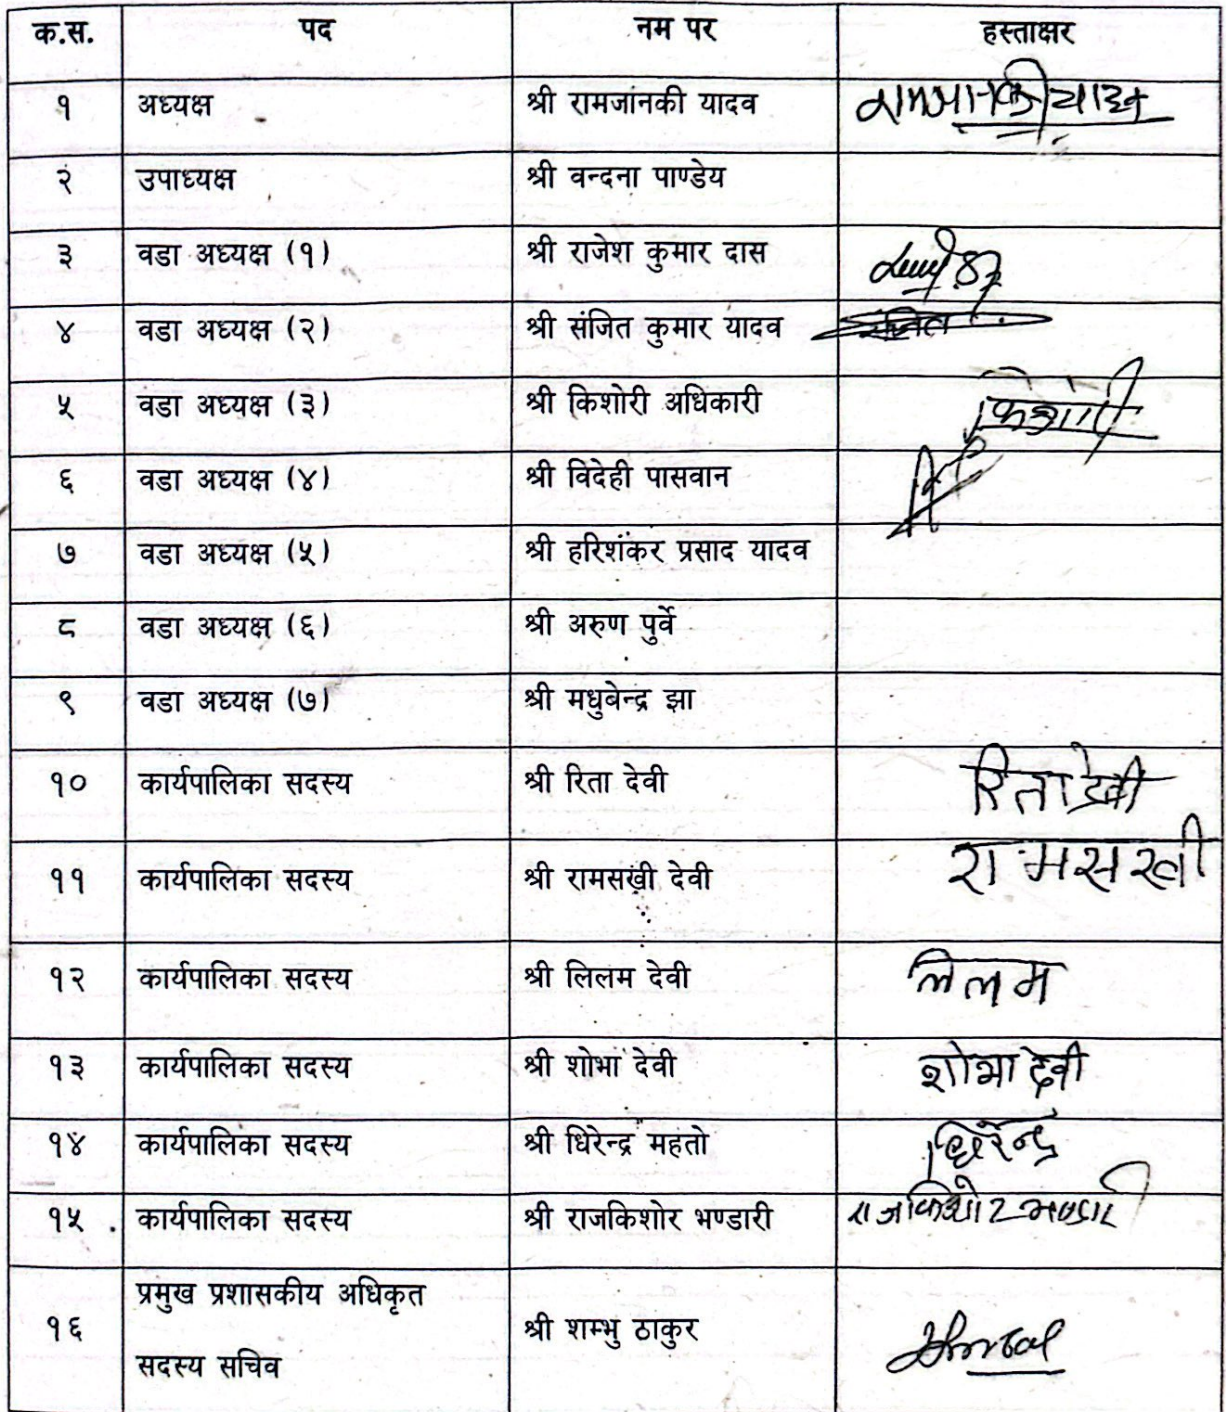 क.स. पद नम पर हस्ताक्षर
१ अध्यक्ष श्री रामजानकी यादव रामजानकी यादव
२ उपाध्यक्ष श्री वन्दना पाण्डेय
३ वडा अध्यक्ष (१) श्री राजेश कुमार दास
४ वडा अध्यक्ष (२) श्री संजित कुमार यादव संजित
५ वडा अध्यक्ष (३) श्री किशोरी अधिकारी किशोरी
६ वडा अध्यक्ष (४) श्री विदेही पासवान
७ वडा अध्यक्ष (५) श्री हरिशंकर प्रसाद यादव
८ वडा अध्यक्ष (६) श्री अरुण पुर्वे
९ वडा अध्यक्ष (७) श्री मधुबेन्द्र झा
१० कार्यपालिका सदस्य श्री रिता देवी रिता देवी
११ कार्यपालिका सदस्य श्री रामसखी देवी रामसखी
१२ कार्यपालिका सदस्य श्री लिलम देवी लिलम
१३ कार्यपालिका सदस्य श्री शोभा देवी शोभा देवी
१४ कार्यपालिका सदस्य श्री धिरेन्द्र महतो धिरेन्द्र
१५ कार्यपालिका सदस्य श्री राजकिशोर भण्डारी राजकिशोर भण्डारी
प्रमुख प्रशासकीय अधिकृत
१६ श्री शम्भु ठाकुर
सदस्य सचिव